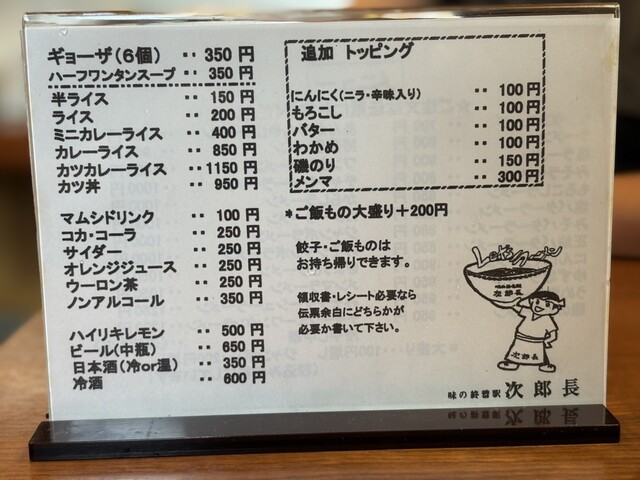 ギョーザ（６個） ‥ 350 円
ハーフワンタンスープ ‥ 350 円
半ライス ‥ 150 円
ライス ‥ 200 円
ミニカレーライス ‥ 400 円
カレーライス ‥ 850 円
カツカレーライス ‥ 1150 円
カツ丼 ‥ 950 円
マムシドリンク ‥ 100 円
コカ・コーラ ‥ 250 円
サイダー ‥ 250 円
オレンジジュース ‥ 250 円
ウーロン茶 ‥ 250 円
ノンアルコール ‥ 350 円
ハイリキレモン ‥ 500 円
ビール（中瓶） ‥ 650 円
日本酒（冷or温） ‥ 350 円
冷酒 ‥ 600 円
追加 トッピング
にんにく（ニラ・辛味入り） ‥ 100 円
もろこし ‥ 100 円
バター ‥ 100 円
わかめ ‥ 100 円
磯のり ‥ 150 円
メンマ ‥ 300 円
＊ご飯もの大盛り＋200円
餃子・ご飯ものは
お持ち帰りできます。
領収書・レシート必要なら
伝票余白にどちらかが
必要か書いて下さい。
次郎長
次郎長
味の終着駅 次郎長